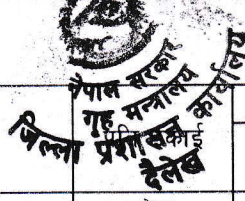 नेपाल सरकार
गृह मन्त्रालय
जिल्ला प्रशासन कार्यालय
दैलेख